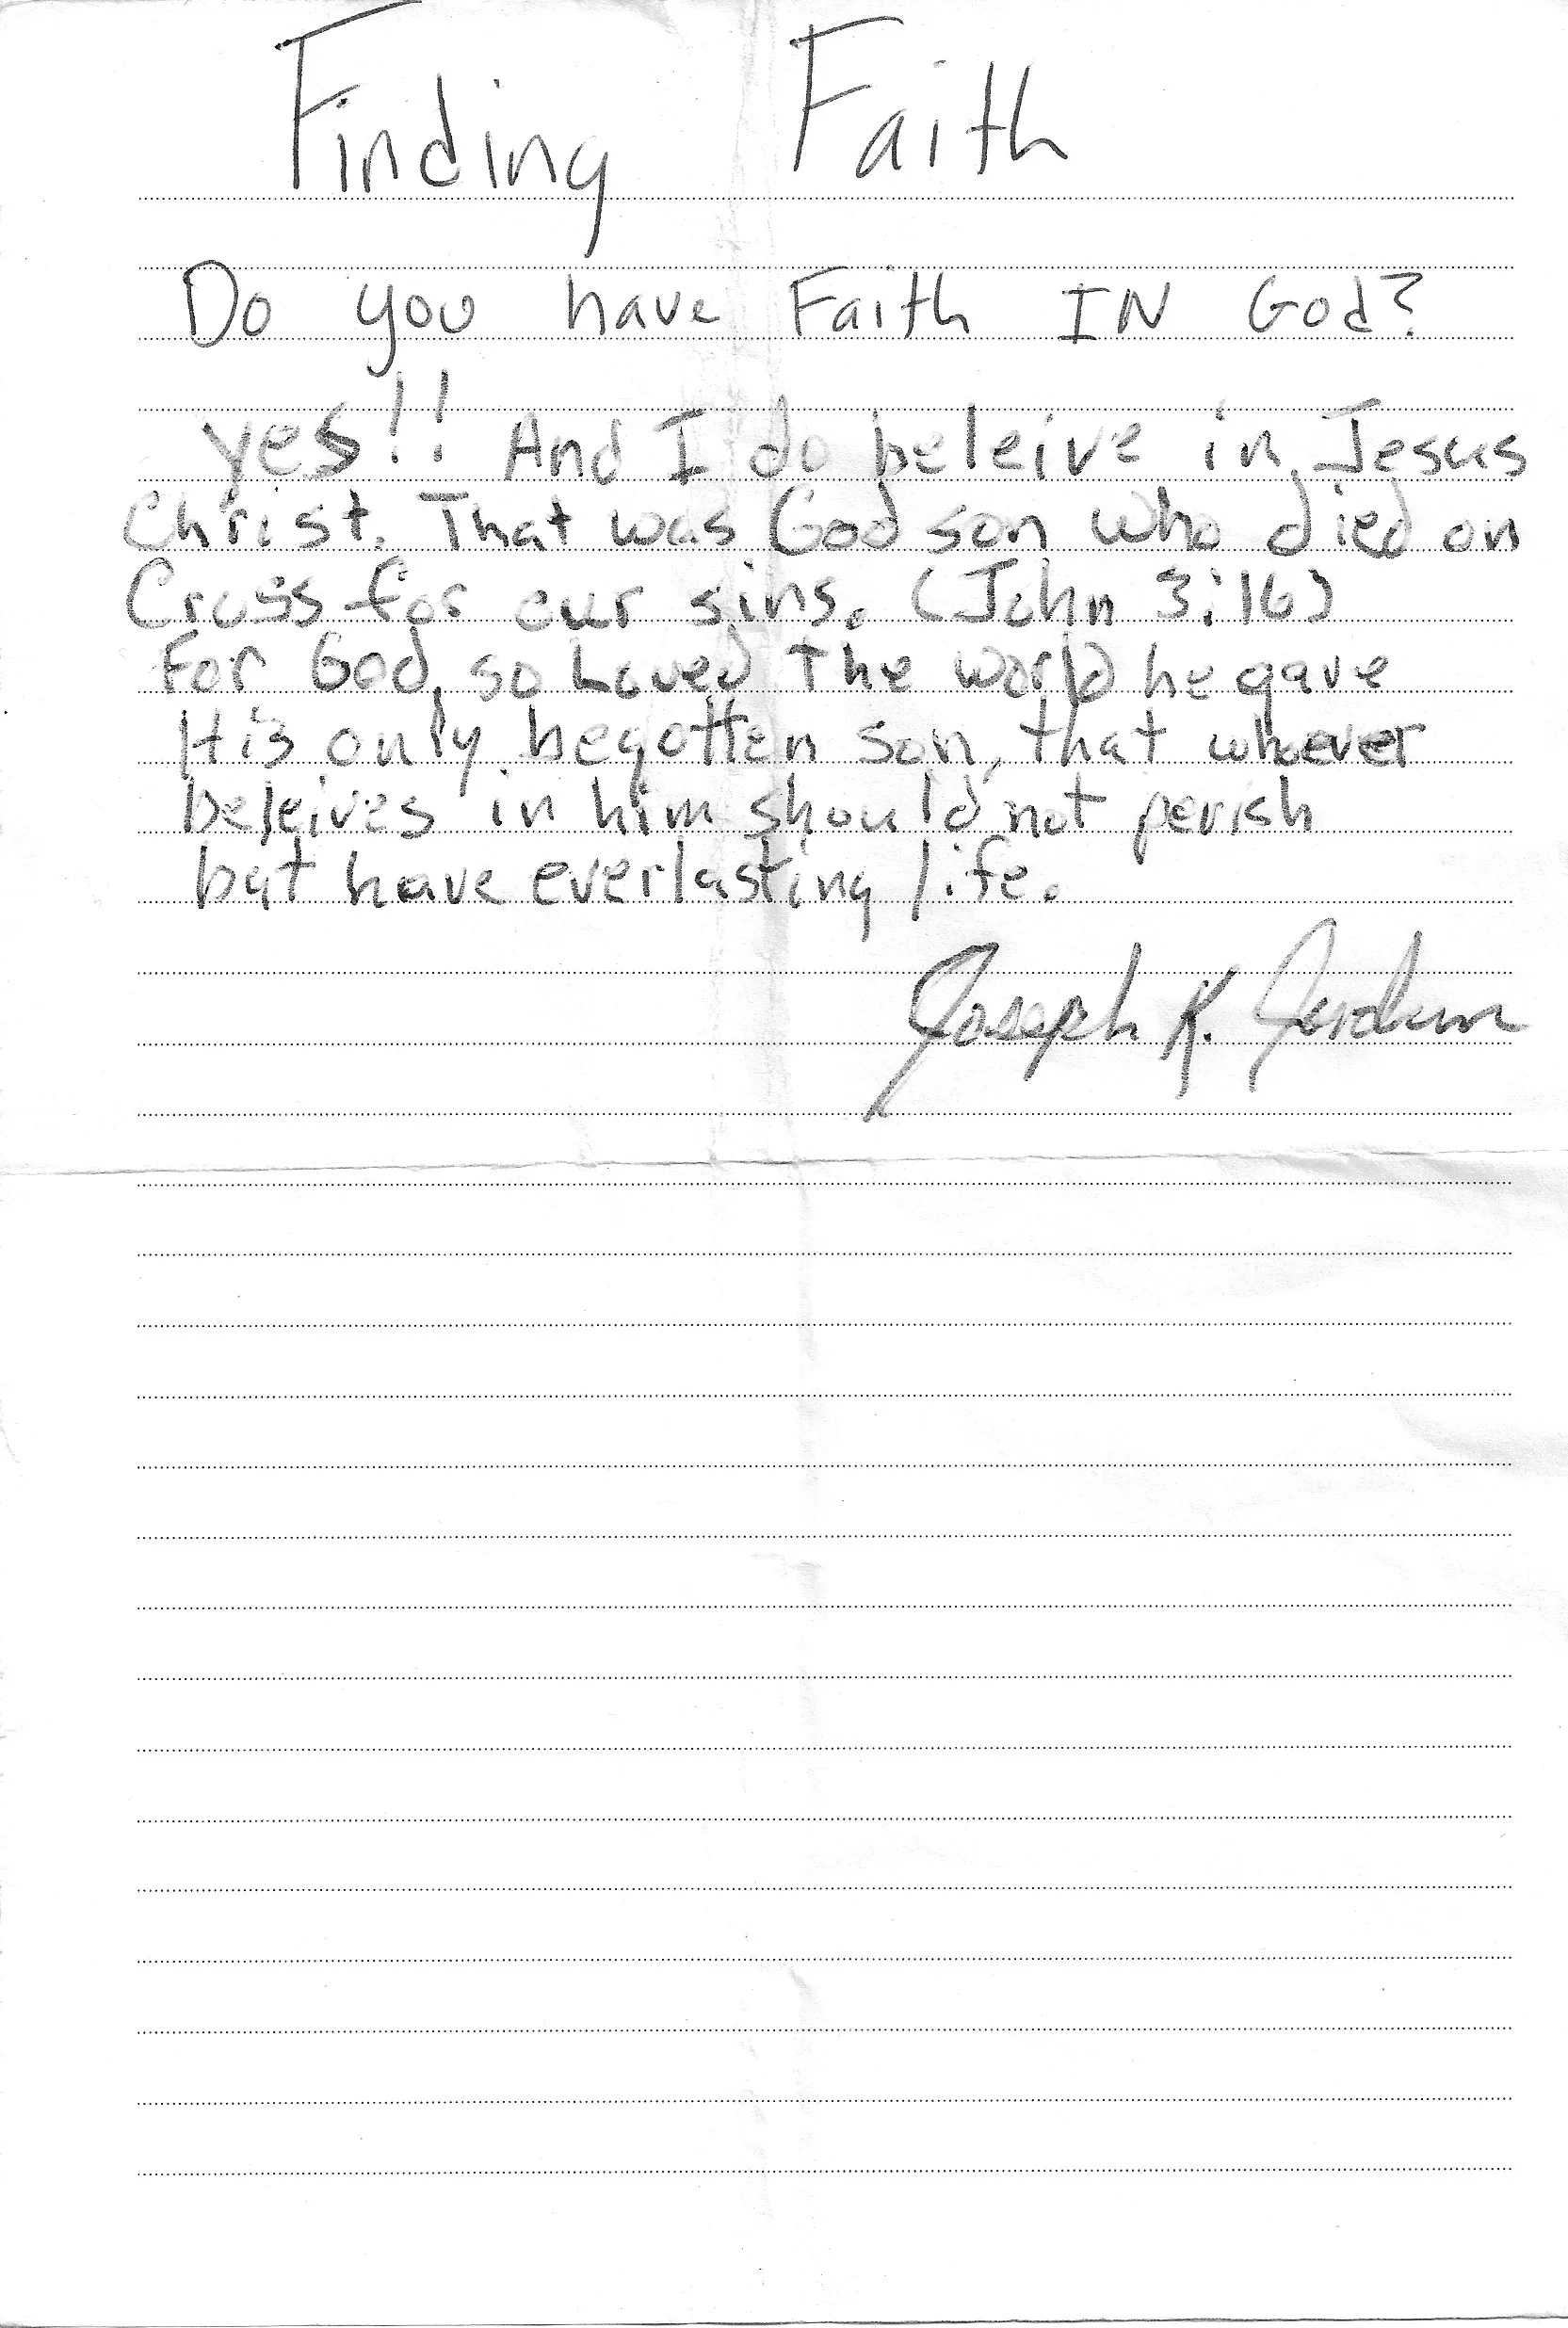 Finding Faith
Do you have Faith IN God?
yes!! And I do beleive in Jesus
Christ. That was God son who died on
Cross for our sins. (John 3:16)
For God, so Loved The World he gave
His only begotten son, that whoever
beleives in him should not perish
but have everlasting life.
Joseph K. Jordan